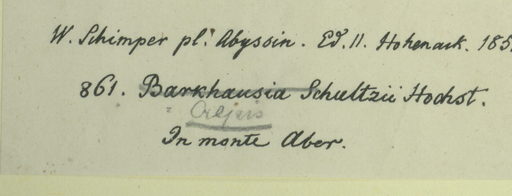 W. Schimper pl. Abyssin. Ed. II. Hohenack. 185
861. Barkhausia Schultzii Hochst.
" Crepis
In monte Aber.